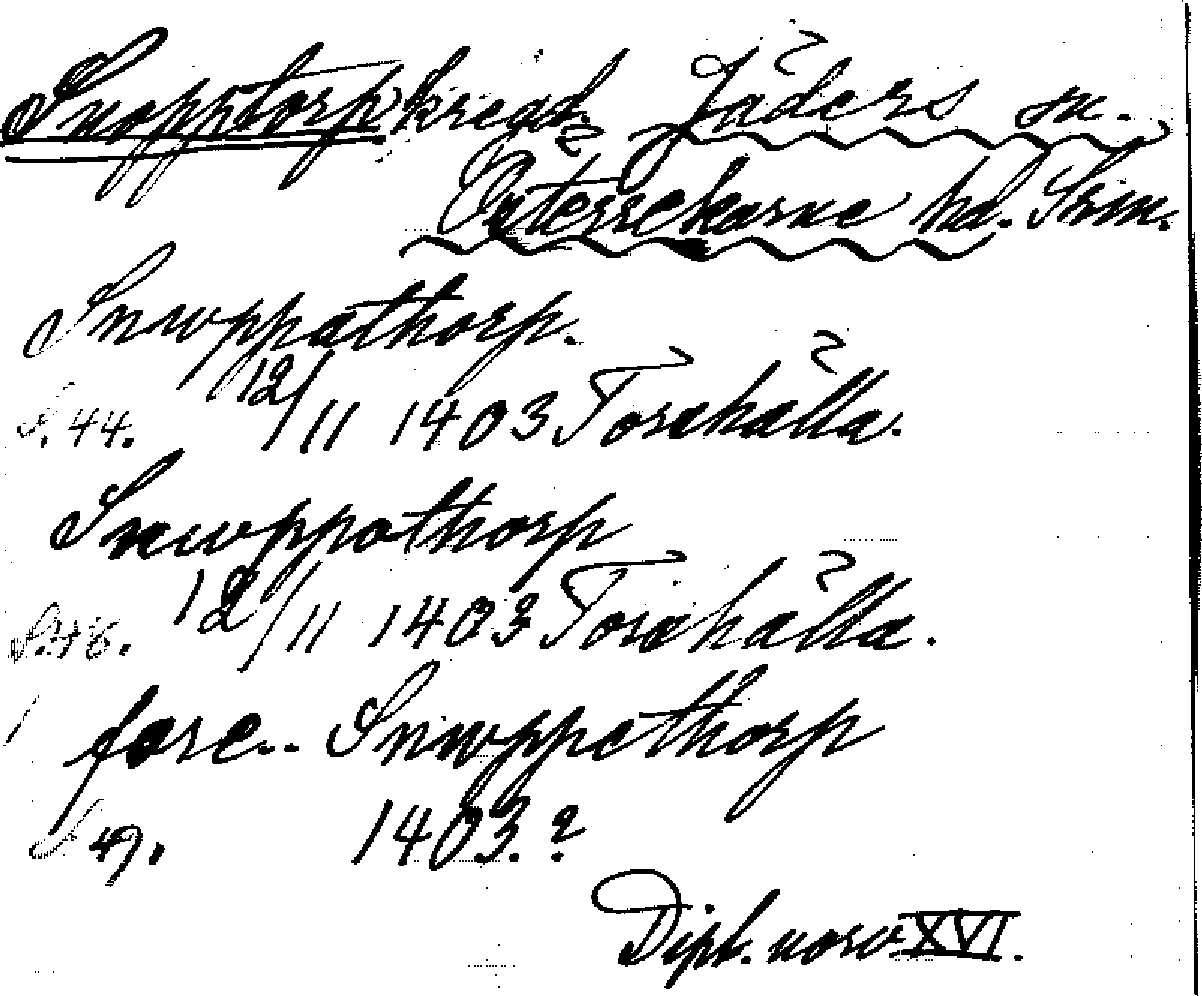 Snopptorp kregd. Jäders sn.
Österrekarne hd. Srm.
Snwppathorp.
S. 44. 12/11 1403 Torshälla.
Snwppothorp
S. 46. 12/11 1403 Torshälla.
fore.. Snwppethorp
S 47. 1403.?
Dipl. norv XVI.